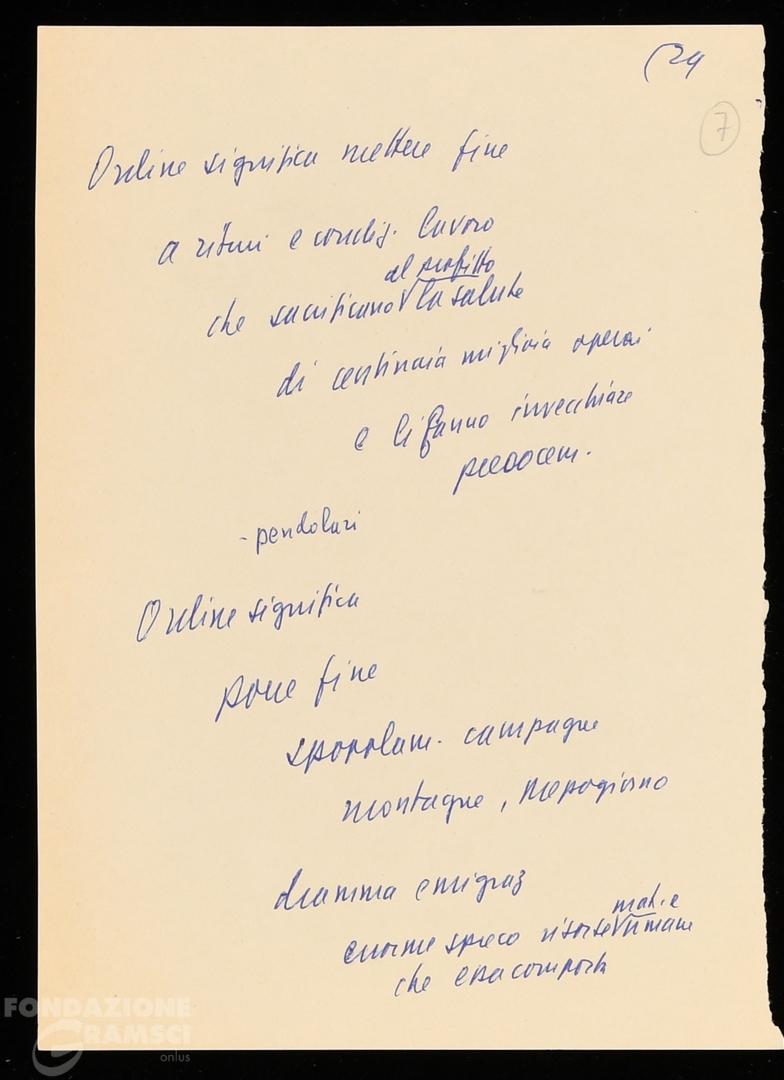 (24
7
Ordine significa mettere fine
a ritmi e condiz. lavoro
al profitto
che sacrificano la salute
di centinaia migliaia operai
e li fanno invecchiare
precocem.
- pendolari
Ordine significa
porre fine
spopolam. campagne
montagne, Mezzogiorno
dramma emigraz
mat. e
enorme spreco risorse umane
che essa comporta
FONDAZIONE
GRAMSCI
onlus